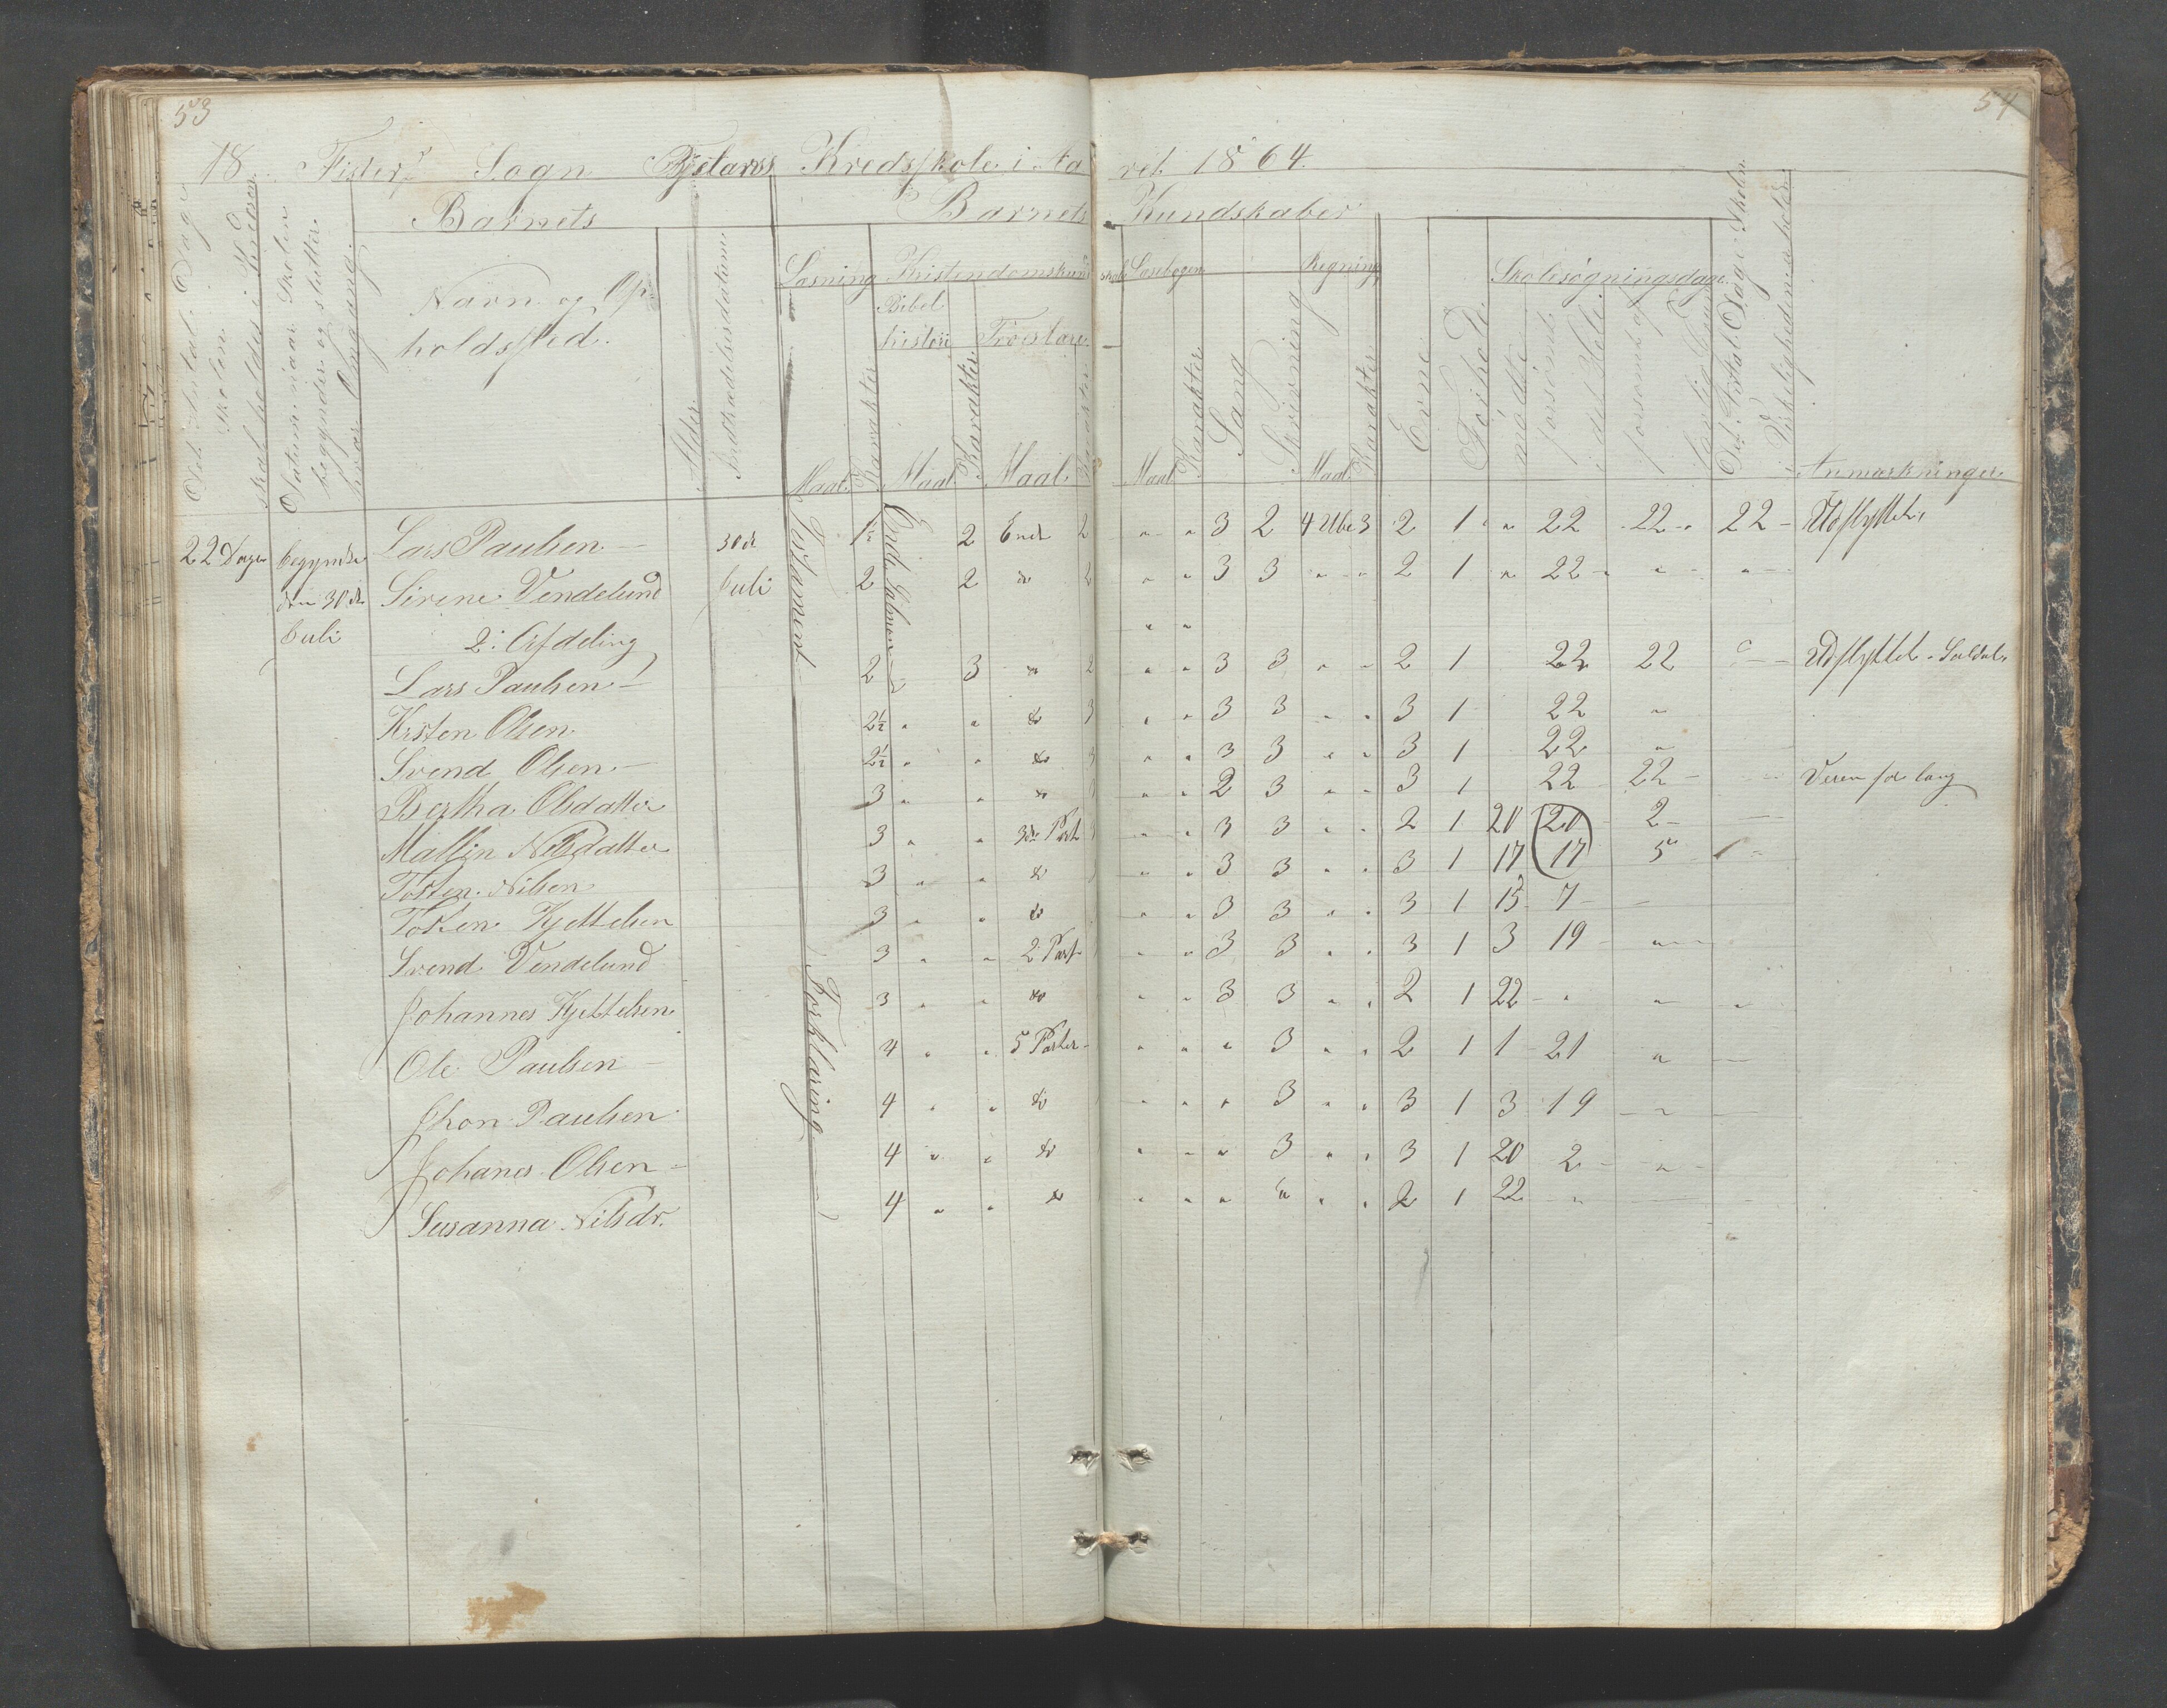 53
54
18 Fister Sogn Fjetarrs Kredsskole i Aa ret 1864.
Barnets
Barnets Kundskaber
Det Antal Dage Skolen skal holdes i Kredsen.
Datum naar Skolen begynder og slutter hver Omgang.
Navn og Op-
holdssted.
Alder.
Indtrædelsesdatum.
Læsning
Kristendomskundskab
Læsebogen
Regning
Skolesøgningsdage.
Bibel
historie
Troeslære
Maal. Karakter. Maal Karakter. Maal.
Maal Karakter Sang Skrivning Maal. Karakter.
Evne. Forhold. mødte forsømt i det Hele forsømt af
Det Antal Dage Skolen i Virkeligheden er holdt.
Anmærkninger
22 Dage begyndte Lars Paulsen 30de 1½ 2 Ende 2 " " 3 2 4 Ube 3 2 1 " 22 22 22 Udflyttet
den 30de Sirene Vendelund Juli 2 2 do 2 " " 3 3 " " 2 1 " 22 " "
Juli 2: Afdeling " "
Lars Paulsen 2 3 " 2 " " 3 3 " " 2 1 22 22 Udflyttet
Kristen Olsen 2½ " " do 3 " " 3 3 " " 3 1 22 "
Svend Olsen 2½ " " do 3 " " 3 3 " " 3 1 22 "
Bertha Olsdatter 3 " " do 3 " " 2 3 " " 3 1 22 22 Veien for lang
Mallin Nilsdatter 3 " " 3de Part 3 " " 3 3 " " 2 1 20 20 2
Tosten Nilsen 3 " " do " " 3 3 " " 3 1 17 17 5
Tosten Kjettelsen 3 " " do " " 3 3 " " 3 1 15 7
Svend Vendelund 3 " " 2 Part " " 3 3 " " 3 1 3 19 "
Johannes Kjettelsen 3 " " do " " 3 3 " " 2 1 22 " " "
Ole Paulsen 4 " " 5 Parter " " " 3 " " 2 1 1 21 "
Jhon Paulsen 4 " " do " " " 3 " " 3 1 3 19 "
Johanes Olsen 4 " " do " " " 3 " " 3 1 20 2 "
Susanna Nilsdr. 4 " " do " " " " " " 2 1 22 "
Testament
Ende Salmon
Forklaring